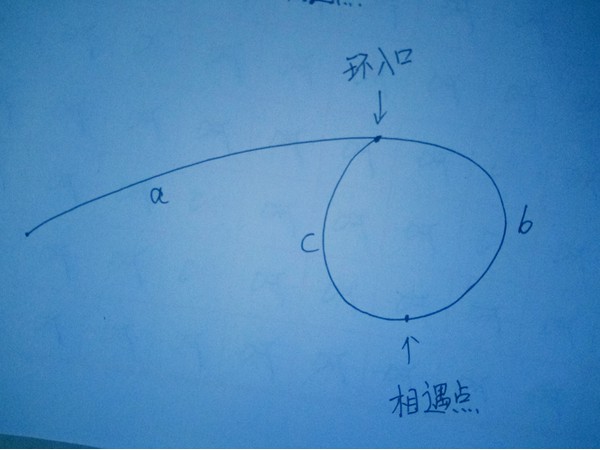 环入口
a
c
b
相遇点